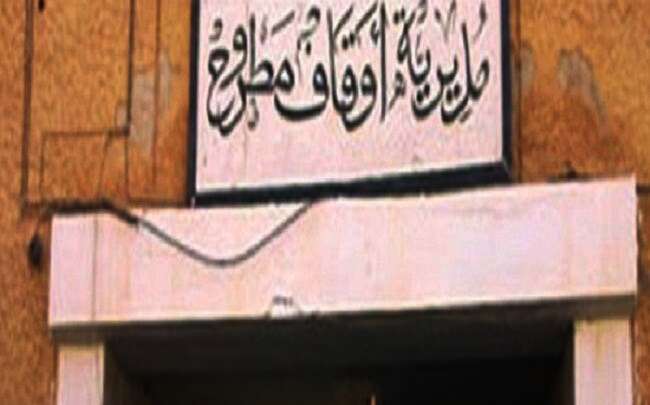 مديرية أوقاف مطروح